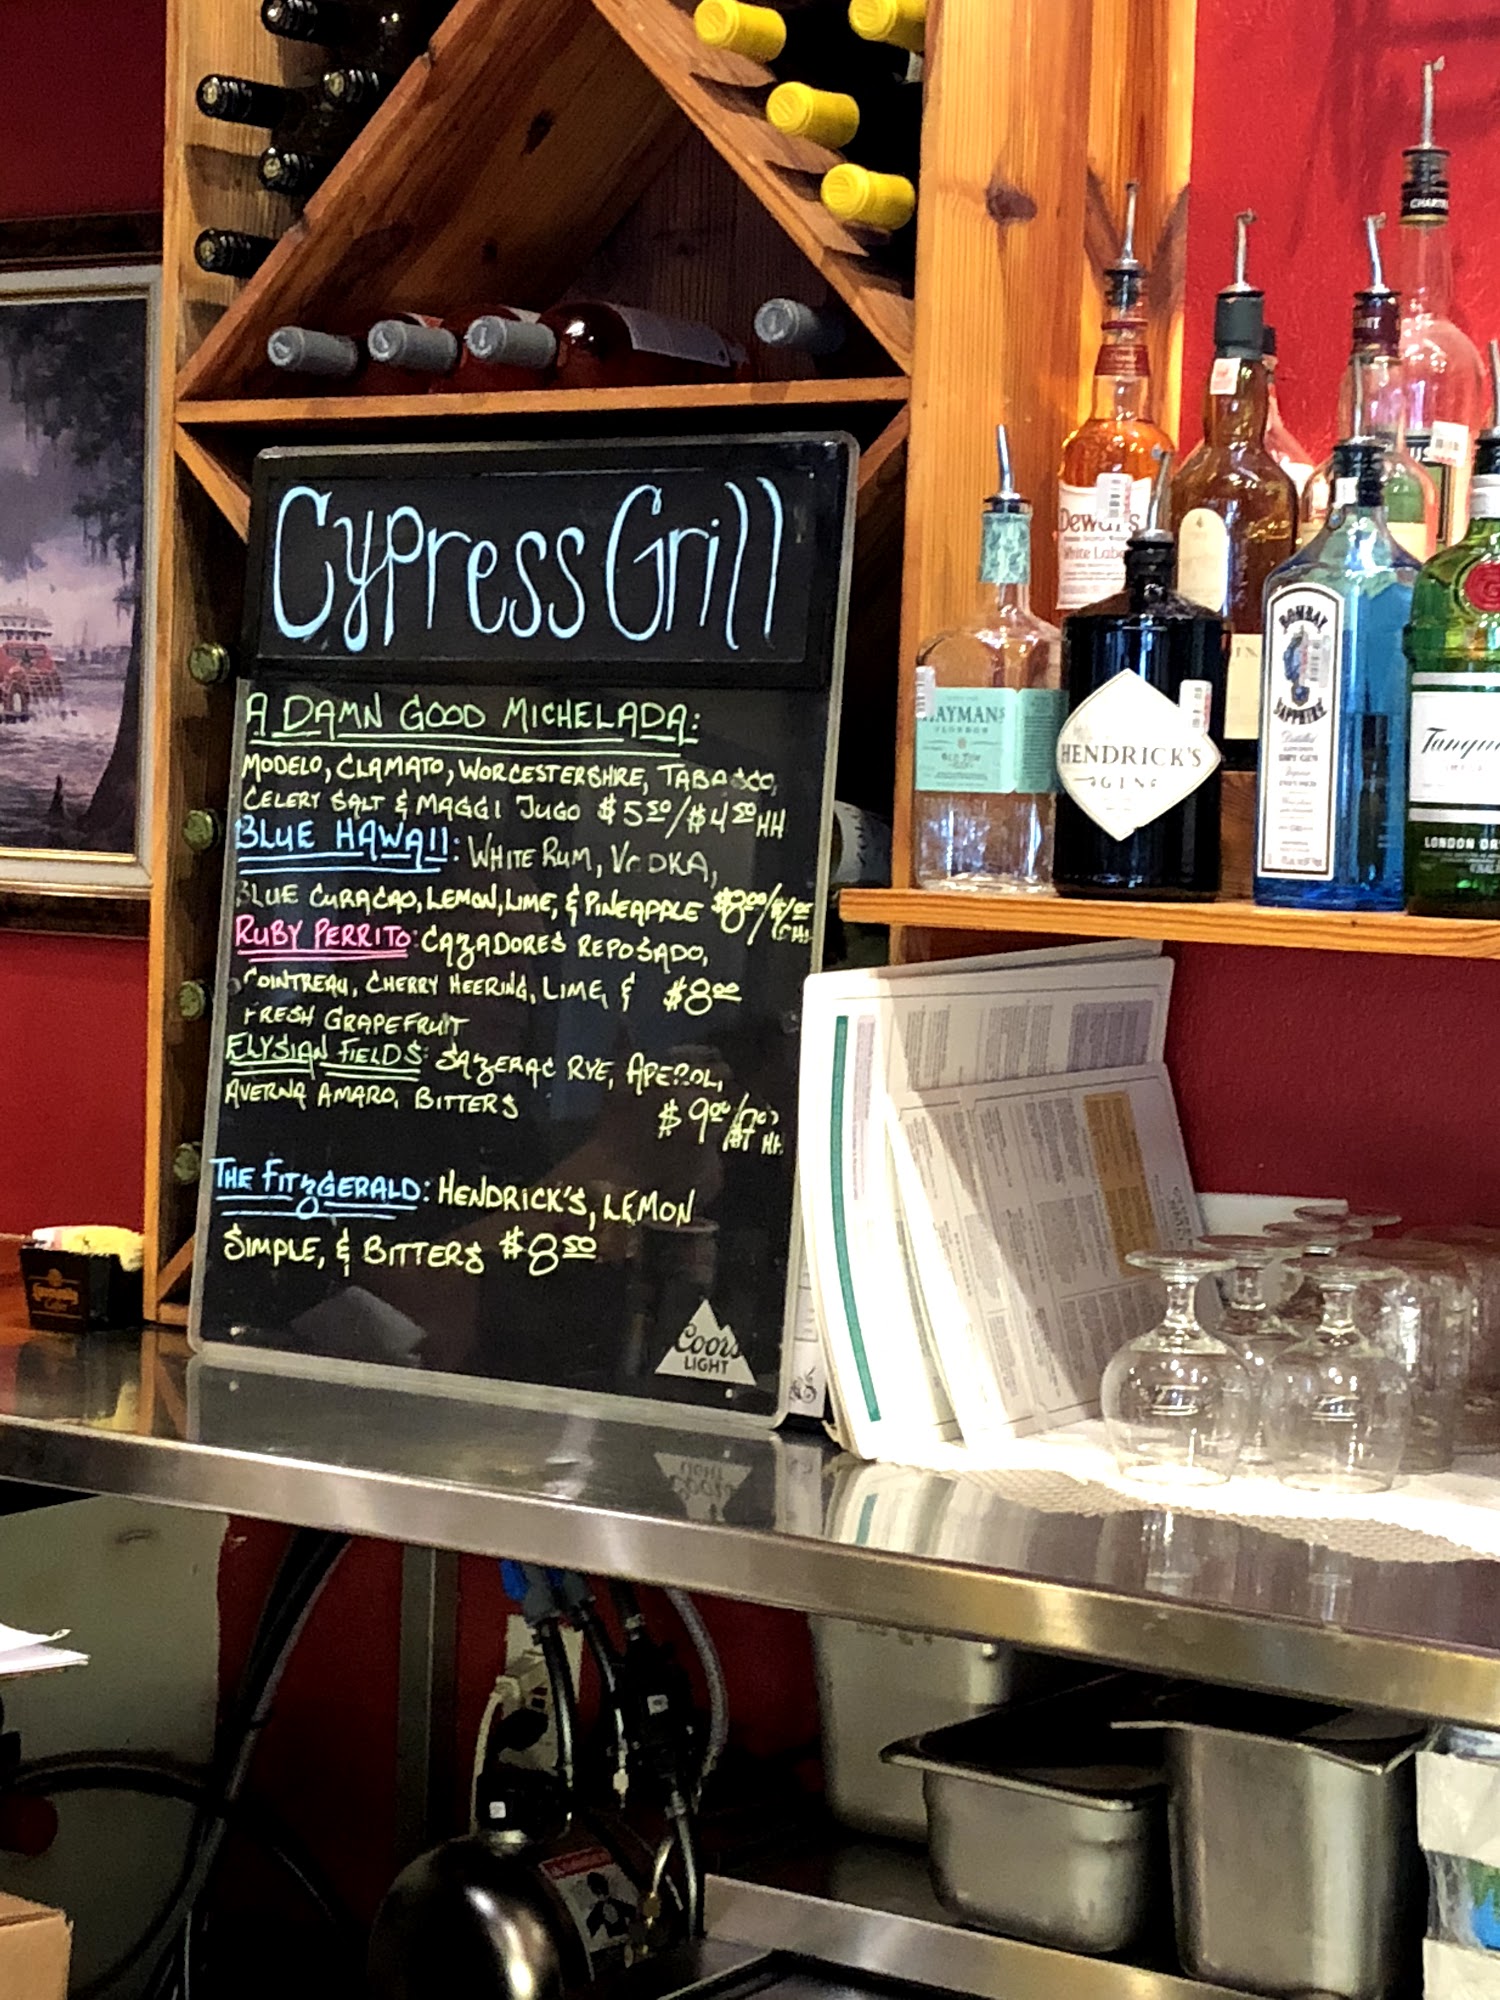 Cypress Grill
A DAMN GOOD MICHELADA:
MODELO, CLAMATO, WORCESTERSHIRE, TABASCO,
CELERY SALT & MAGGI JUGO $5.50/$4.50 HH
BLUE HAWAII: WHITE RUM, VODKA,
BLUE CURACAO, LEMON, LIME, & PINEAPPLE $8.00/
RUBY PERRITO: CAZADORES REPOSADO,
COINTREAU, CHERRY HEERING, LIME, & $8.00
FRESH GRAPEFRUIT
ELYSIAN FIELDS: SAZERAC RYE, APEROL,
AVERNA AMARO, BITTERS
$9.00/ HH
THE FITZGERALD: HENDRICK'S, LEMON
SIMPLE, & BITTERS $8.50
Coors
LIGHT
CHART
Dewar's
White Label
HAYMAN'S
OLD TOM
HENDRICK'S
GIN
BOMBAY
SAPPHIRE
Distilled
LONDON
DRY GIN
Tanqu
LONDON DR